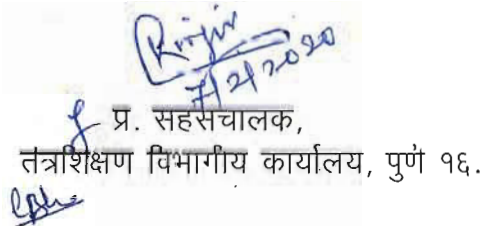 7/2/2020
प्र. सहसंचालक,
तंत्रशिक्षण विभागीय कार्यालय, पुणे १६.